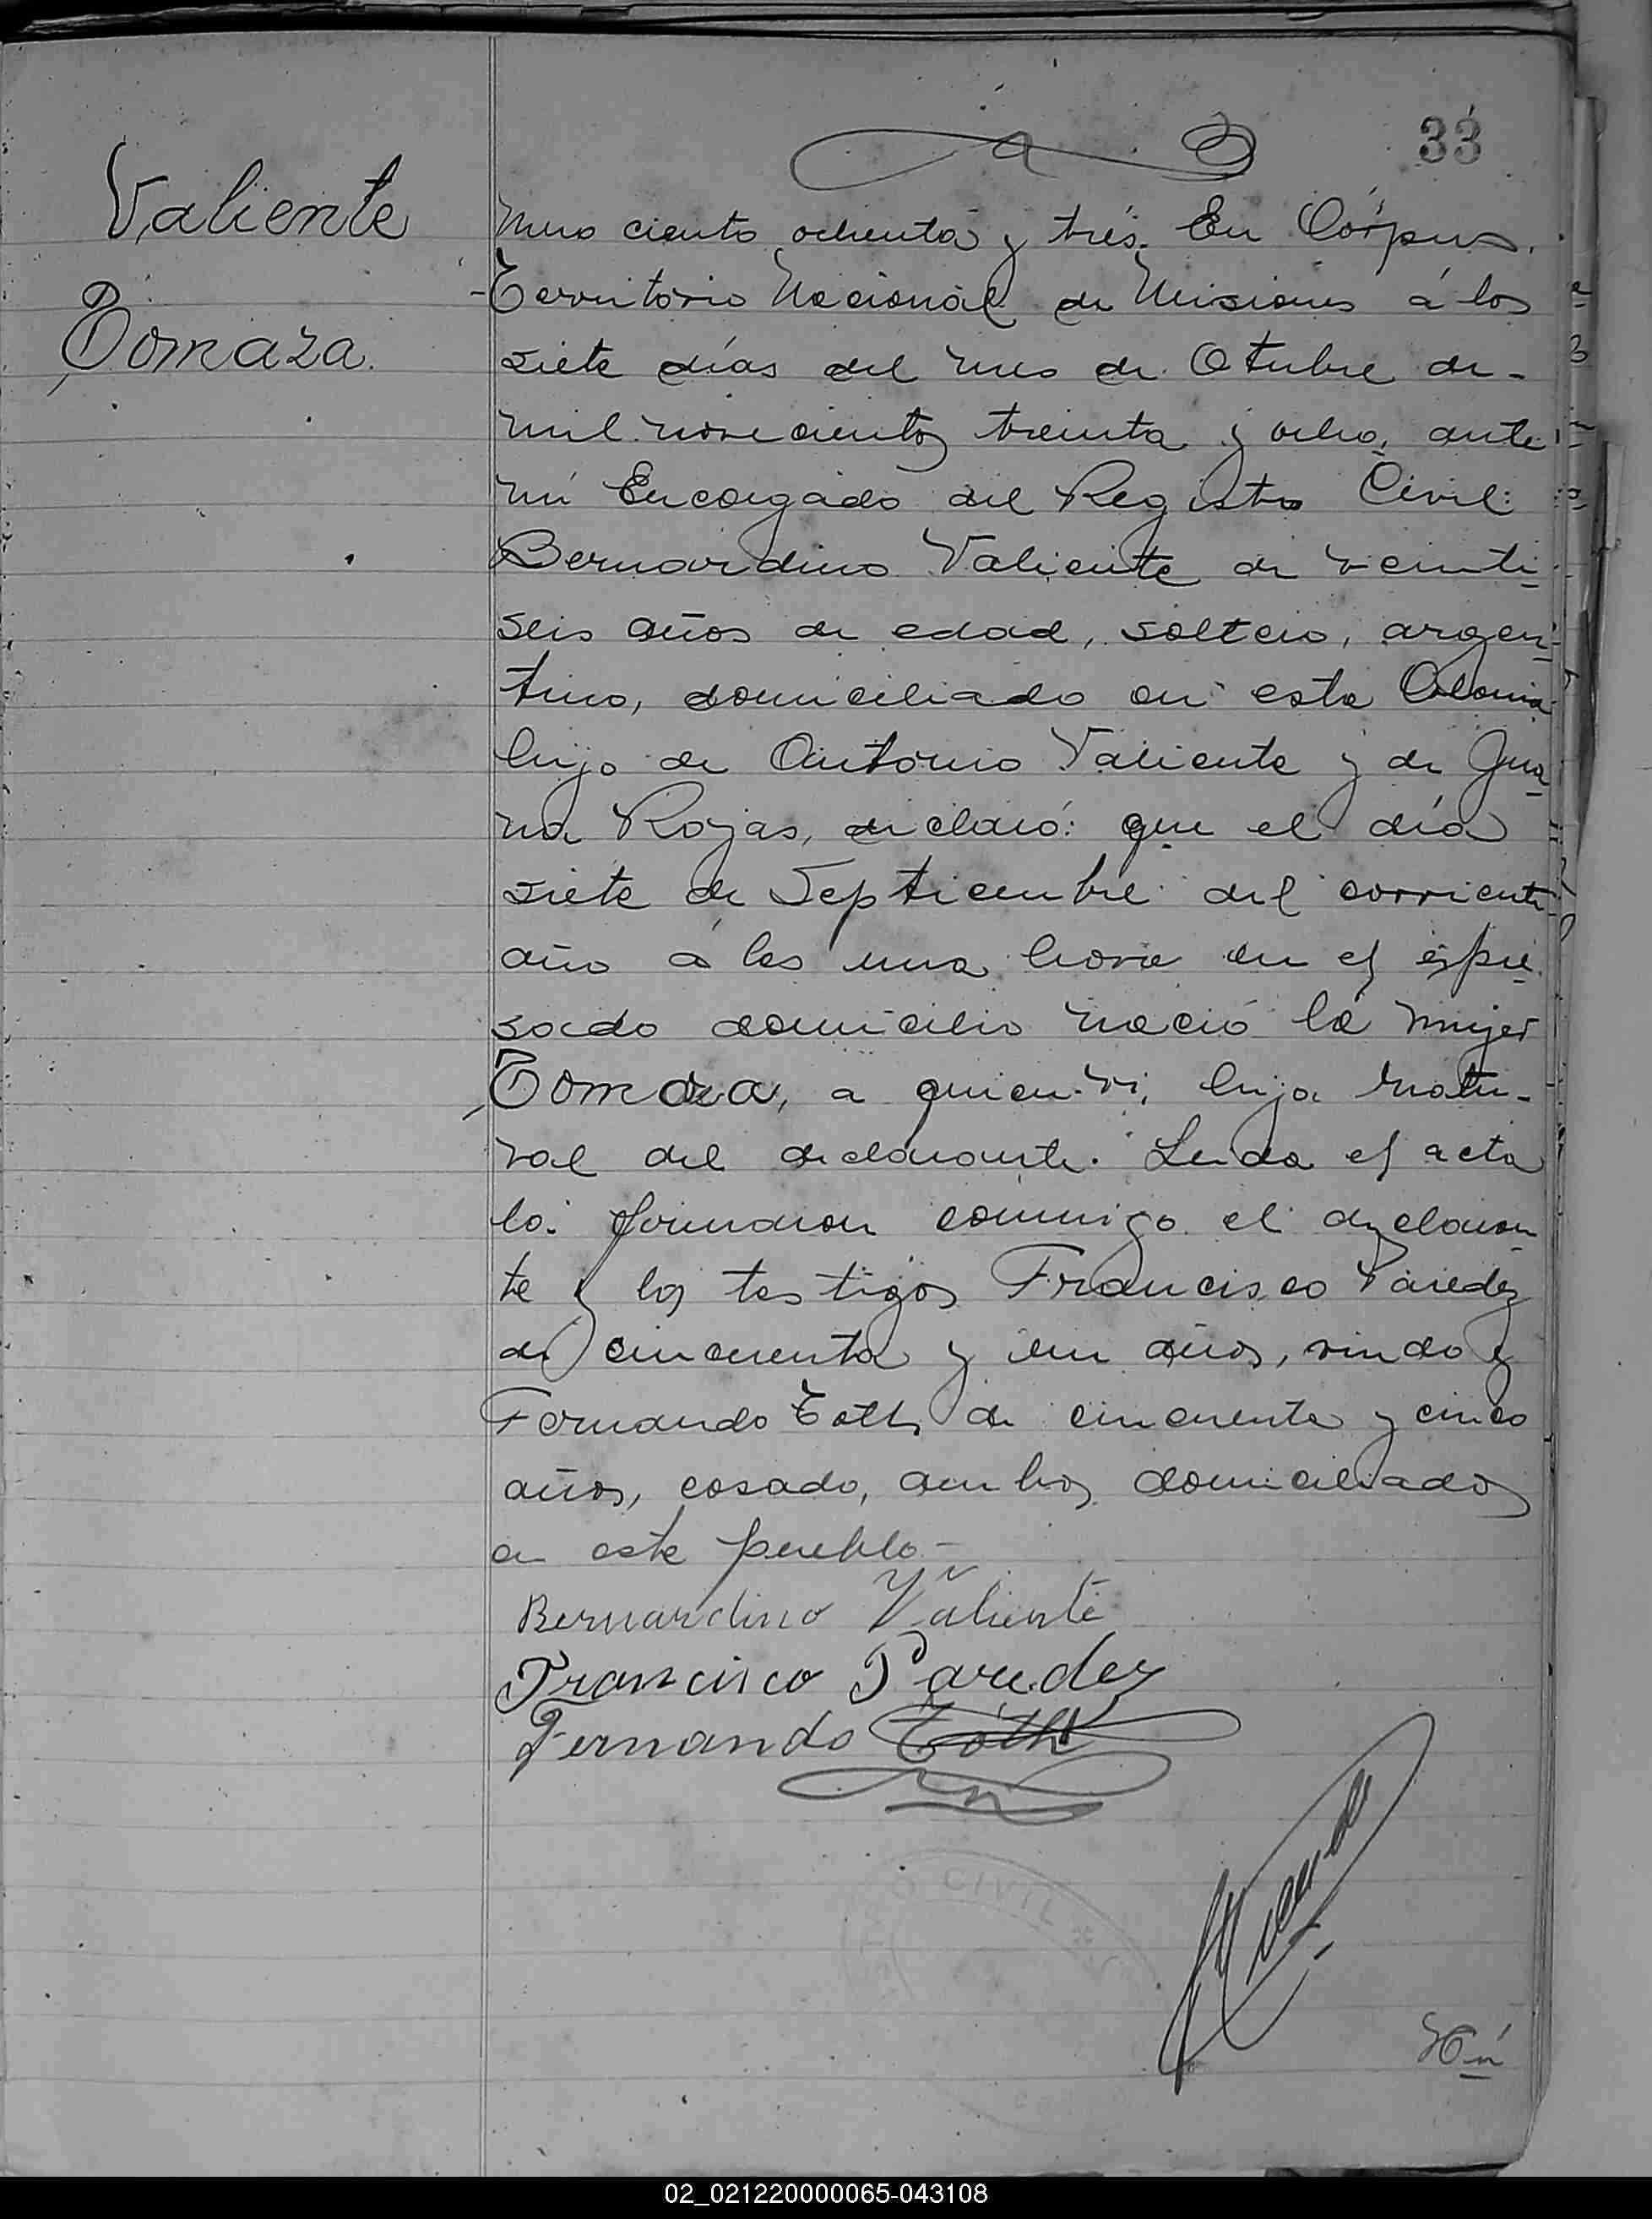 33
Valiente
Tomaza.
mero ciento ochenta y trés. En Córpus,
Territorio Nacional de Misiones á los
siete días del mes de Otubre de-
mil novecientos treinta y ocho, ante
mi Encargado del Registro Civil:
Bernardino Valiente de veinti-
seis años de edad, soltero, argen-
tino, domiciliado en esta Colonia
hijo de Antonio Valiente y de Jua-
na Rojas, declaró: que el día
siete de Septiembre del corriente
año a las una hora en el espre-
sado domicilio nació la mujer
Tomaza, a quien vi, hija natu-
ral del declarante. Leida el acta
la firmaron conmigo el declaran-
te y los testigos Francisco Paredez
de cincuenta y un años, viudo y
Fernando Toth de cincuenta y cinco
años, casado, ambos domiciliados
en este pueblo-
Bernardino Valiente
Francisco Paredez
Fernando Tóth
CIVIL
02_021220000065-043108